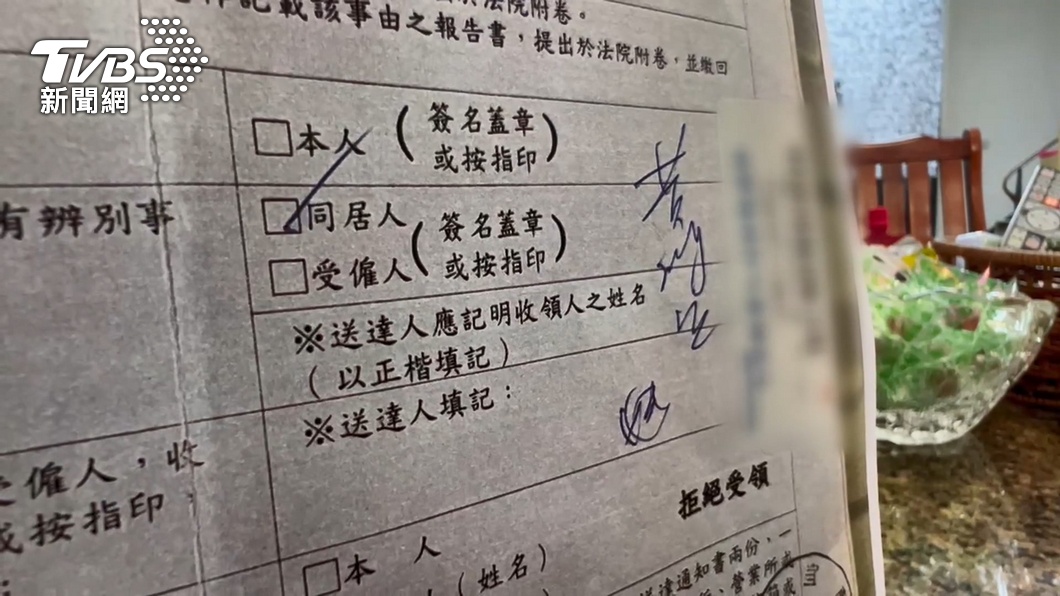 TVBS
新聞網
於法院附卷。
記載該事由之報告書，提出於法院附卷，並繳回
□本人（簽名蓋章
或按指印）
有辨別事
□同居人
□受僱人（簽名蓋章
或按指印）
※送達人應記明收領人之姓名
（以正楷填記）
※送達人填記：
受僱人，收
或按指印：
拒絕受領
□本 人
（姓名）
送達通知書兩份，一
營業所或